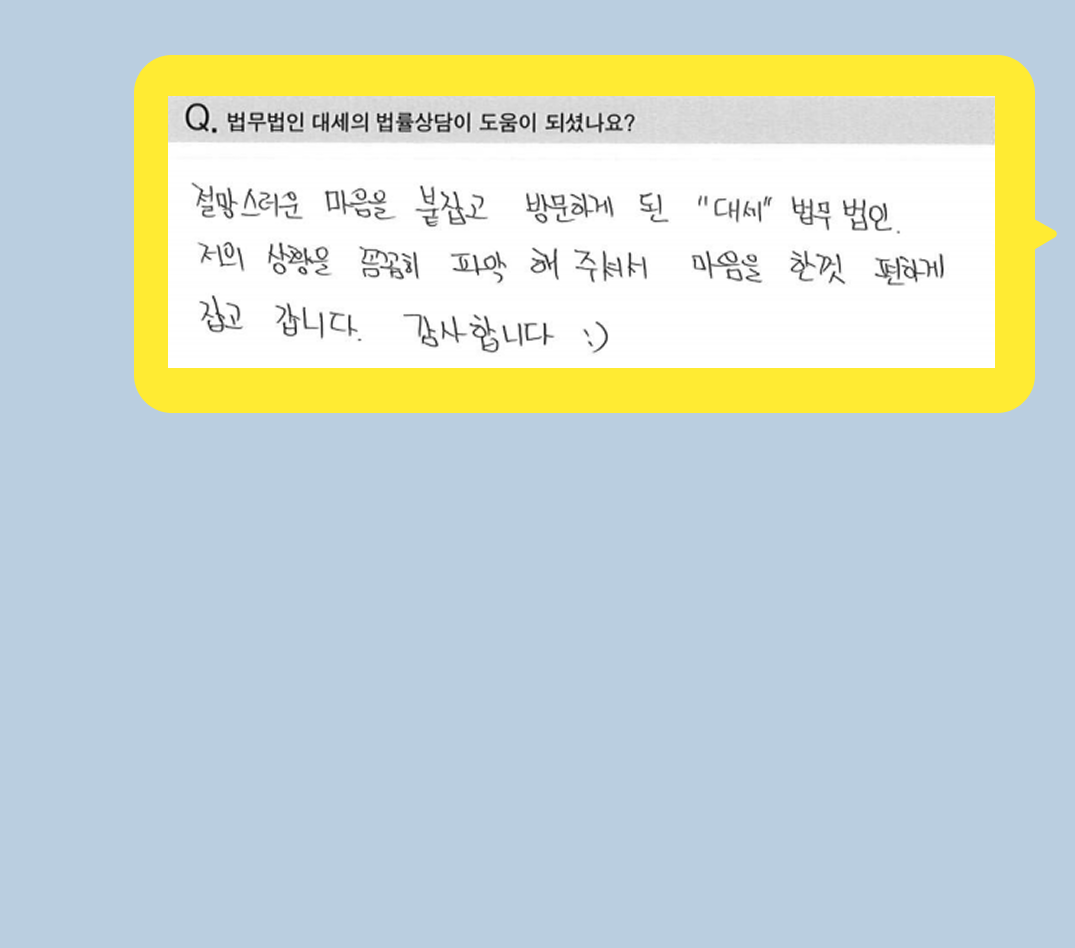 Q. 법무법인 대세의 법률상담이 도움이 되셨나요?
절망스러운 마음을 붙잡고 방문하게 된 "대세" 법무 법인.
저의 상황을 꼼꼼히 파악 해 주셔서 마음을 한껏 편하게
잡고 갑니다. 감사합니다 :)